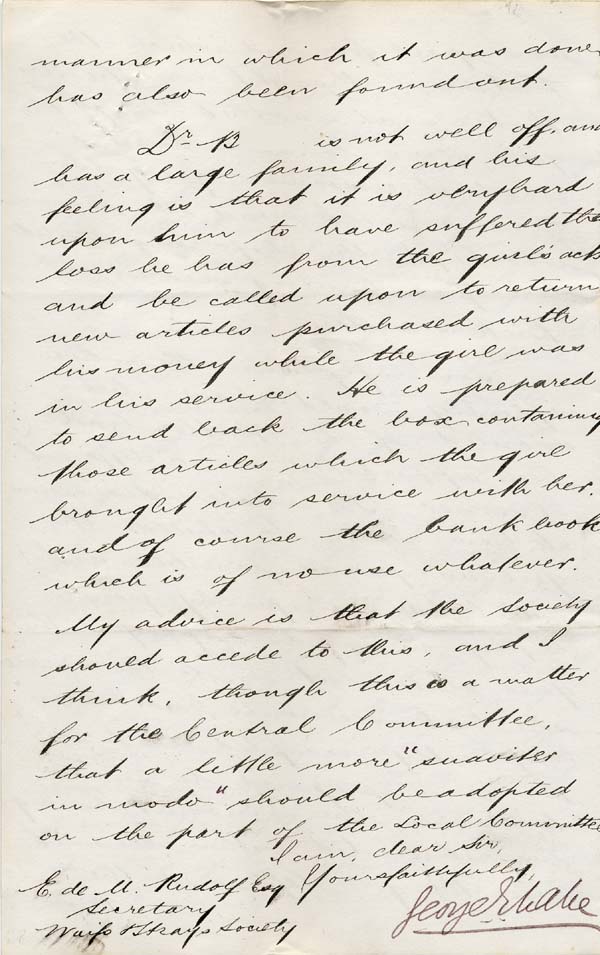 manner in which it was done
has also been found out.
Dr. B is not well off, and
has a large family, and his
feeling is that it is very hard
upon him to have suffered the
loss he has from the girl's acts
and be called upon to return
new articles purchased with
his money while the girl was
in his service. He is prepared
to send back the box containing
those articles which the girl
brought into service with her.
and of course the bank book
which is of no use whatever.
My advice is that the Society
should accede to this, and I
think, though this is a matter
for the Central Committee,
that a little more "suaviter
in modo" should be adopted
on the part of the Local Committee
I am, dear Sir,
Yours faithfully,
E. de M. Rudolf Esq
Secretary
Waifs & Strays Society
George